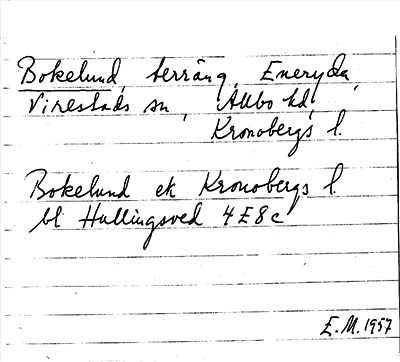 Bokelund, terräng, Eneryda,
Virestads sn, Allbo hd,
Kronobergs l.
Bokelund ek Kronobergs l.
bl Hallingsved 4E8c
E.M. 1957